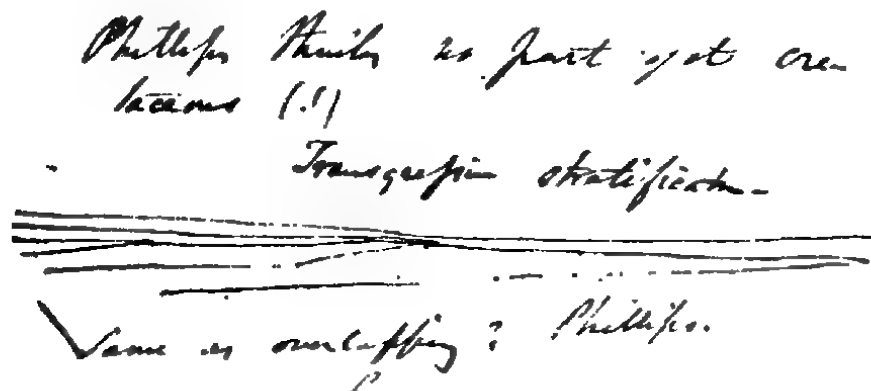 Phillips thinks no part yet cre-
taceous (!)
Transgression stratification
Same as overlapping? Phillips.